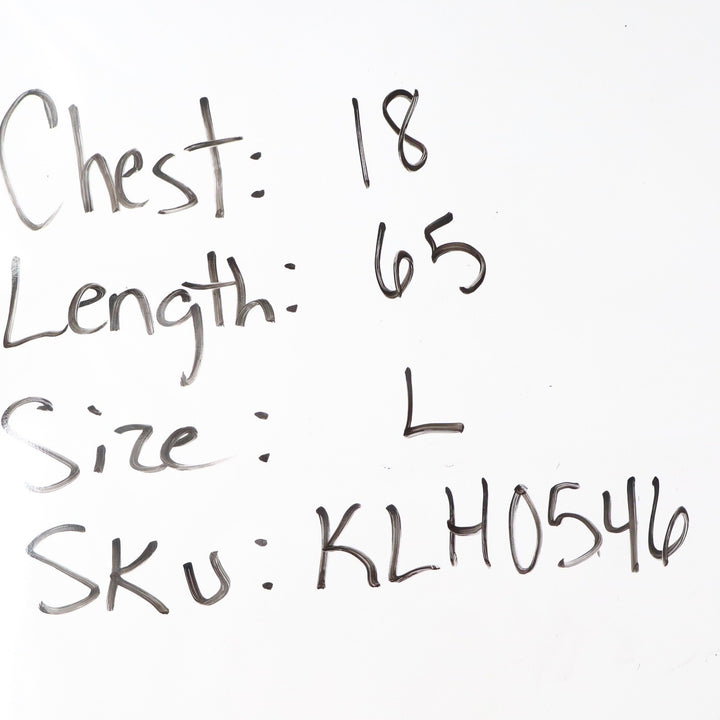 Chest: 18
Length: 65
Size: L
SKU: KLH0546